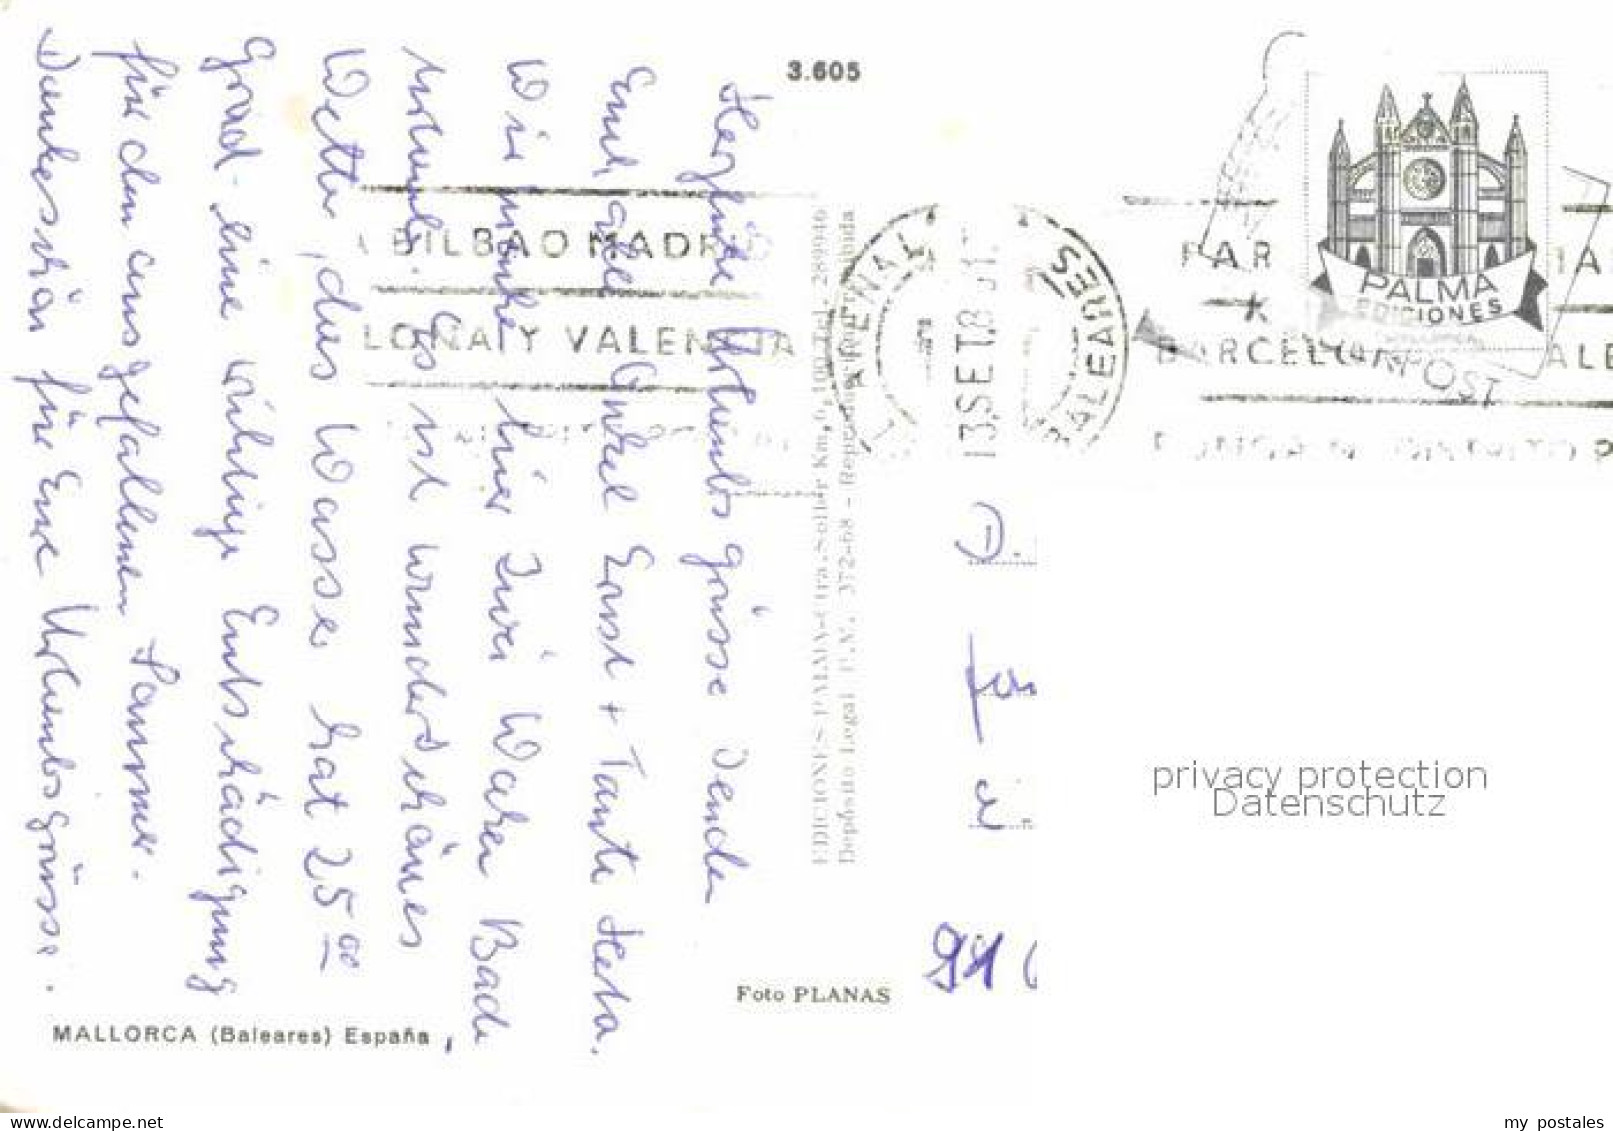 3.605
Herzliche Urlaubsgrüsse senden
Euch alle Onkel Ernst + Tante Herta.
Wir machen hier zwei Wochen Bade
urlaub. Es ist wunderschönes
Wetter, das Wasser hat 25°°
Grad. eine richtige Entschädigung
für den ausgefallenen Sommer.
Dankeschön für Eure Urlaubsgrüsse.
BILBAO MADR
LONA Y VALEN IA
ARENAL
13 SET. 8
BALEARES
PAR
BARCEL
ALE
PALMA
EDICIONES
EDICIONES PALMA-Ctra. Soller Km. 6,100 Tel. 289946
Depósito Legal P.M. 372-68 - Reproducción Prohibida
Foto PLANAS
MALLORCA (Baleares) España
privacy protection
Datenschutz
www.delcampe.net
my_postales